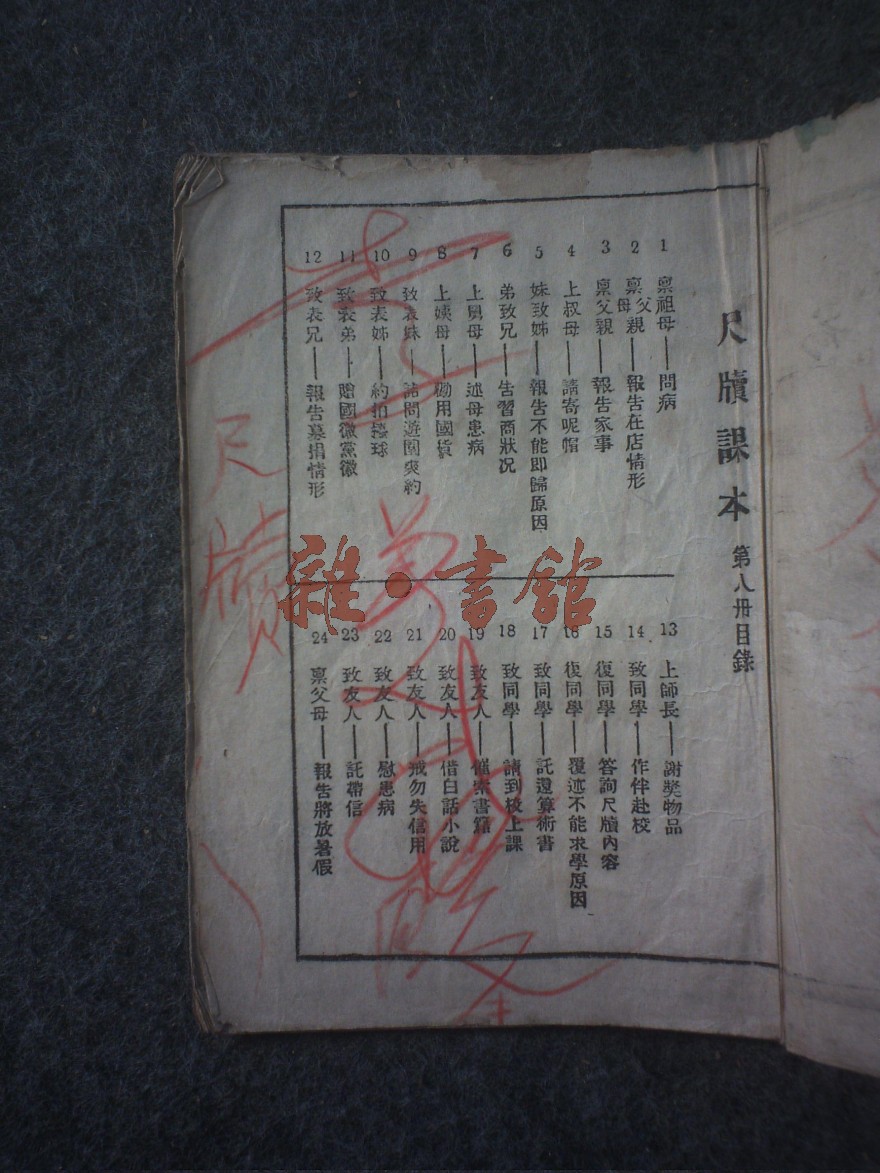 尺牘課本 第八冊目錄
1 稟祖母——問病
2 稟父母親——報告在店情形
3 稟父親——報告家事
4 上叔母——請寄呢帽
5 妹致姊——報告不能即歸原因
6 弟致兄——告習商狀况
7 上舅母——述母患病
8 上姨母——勸用國貨
9 致表妹——詰問遊園爽約
10 致表姊——約拍𣛮球
11 致表弟——贈國徽黨徽
12 致表兄——報告募捐情形
13 上師長——謝獎物品
14 致同學——作伴赴校
15 復同學——答詢尺牘內容
16 復同學——覆述不能求學原因
17 致同學——託還算術書
18 致同學——請到校上課
19 致友人——催索書籍
20 致友人——借白話小說
21 致友人——戒勿失信用
22 致友人——慰患病
23 致友人——託帶信
24 稟父母——報告將放暑假
尺牘
雜·書館